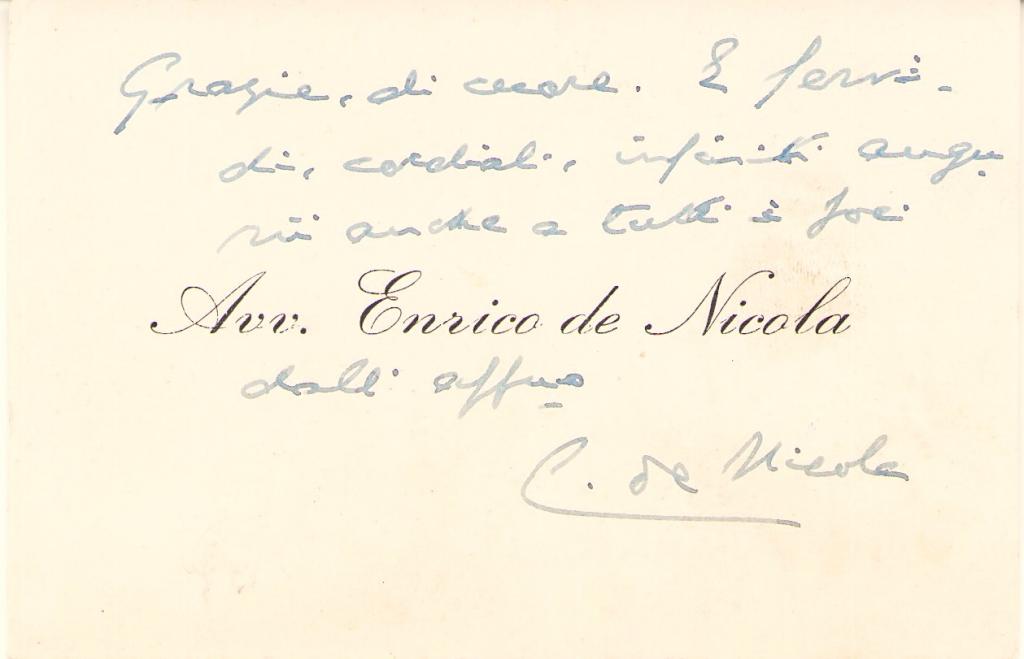 Grazie, di cuore. E fervi-
di, cordiali, infiniti augu
rii anche a tutti i soci
Avv. Enrico de Nicola
dall' affmo
E. de Nicola